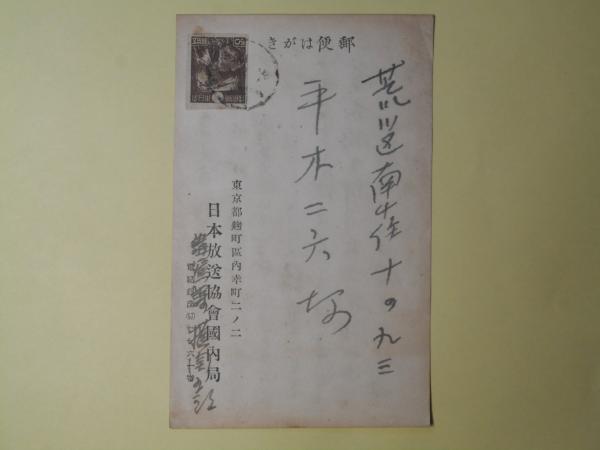 郵便はがき
荒川区南千住十の九三
平木二六様
東京都麹町區內幸町二ノ二
日本放送協會國內局